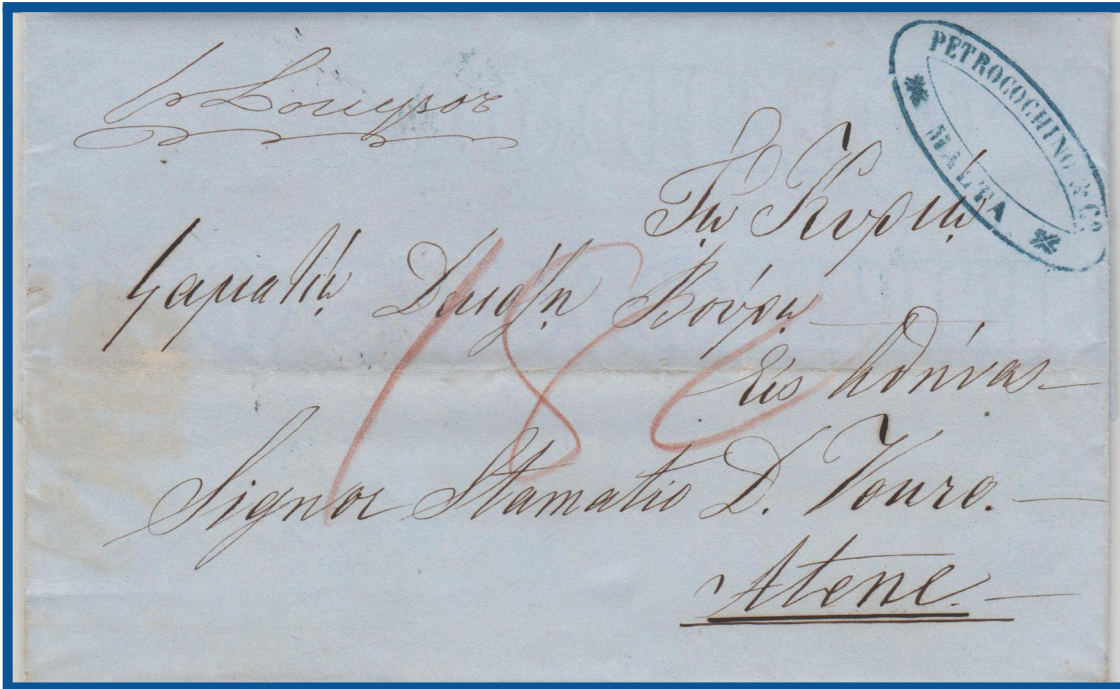 PETROCOCHINO & Cº
MALTA
Τῷ Κυρίῳ
Σταματίῳ Βούρῳ
Εἰς Ἀθήνας
180
Signor Stamatio D. Vouro.
Atene